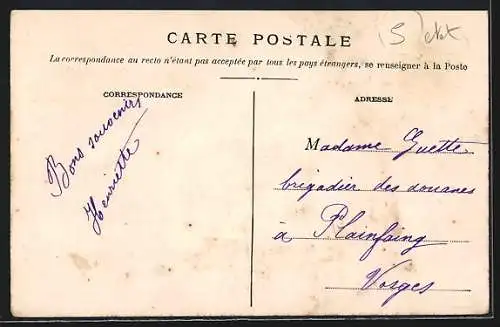 CARTE POSTALE
La correspondance au recto n'étant pas acceptée par tous les pays étrangers, se renseigner à la Poste
CORRESPONDANCE
Bons souvenirs
Henriette
ADRESSE
Madame Guette
brigadier des douanes
à Plainfaing
Vosges